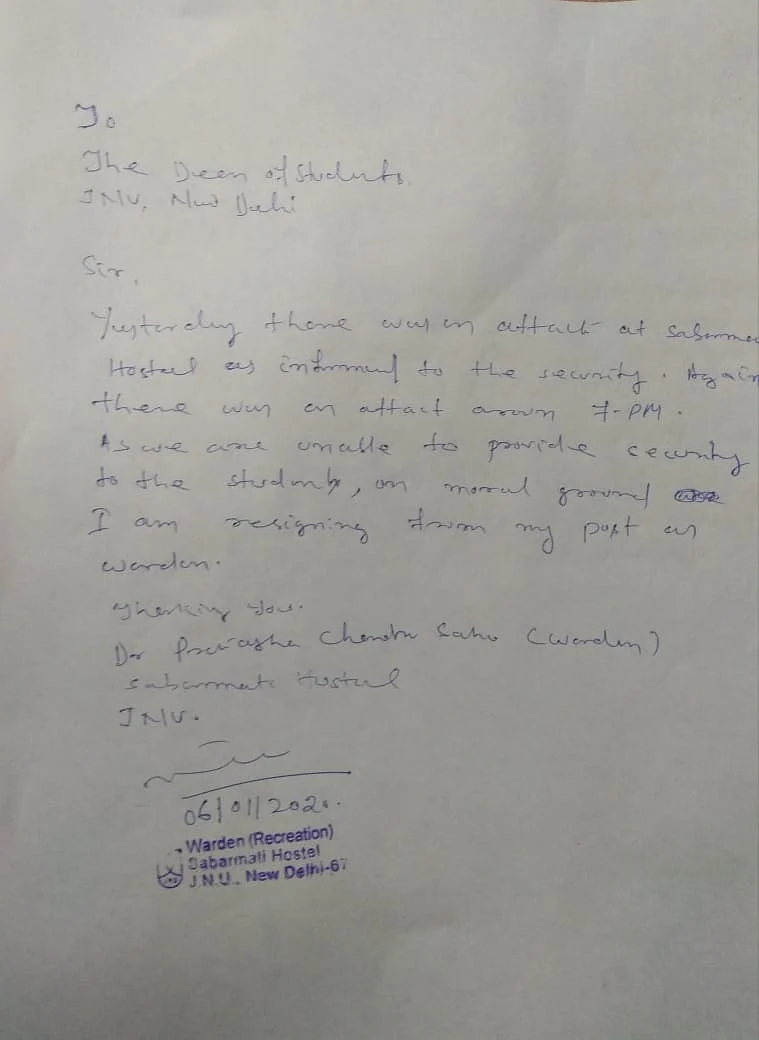 To
The Dean of Students.
JNU, New Delhi
Sir,
Yesterday there was an attack at Sabarma
Hostel as informed to the security. Again
there was an attact aroun 7-PM.
As we are unable to provide cecurity
to the students, on moral ground
I am resigning from my post as
warden.
Thanking You.
Dr Chandra (Warden)
Sabarmati Hostel
JNU.
06/01/2020.
Warden (Recreation)
Sabarmati Hostel
J.N.U., New Delhi-67